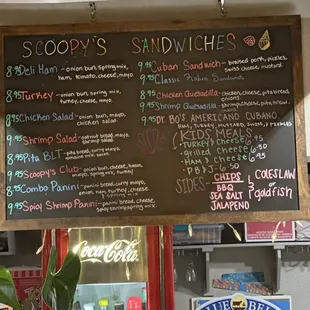 SCOOPY'S SANDWICHES
8.95 Deli Ham - onion bun, spring mix,
ham, tomato, cheese, mayo
8.95 Turkey - onion bun, spring mix,
turkey, cheese, mayo
8.95 Chicken Salad - onion bun,
chicken salad
9.95 Shrimp Salad - bread, mayo,
shrimp salad
8.95 Pita BLT - bread, curry mayo,
8.95 Scoopy's Club - onion bun, cheese, bean,
8.95 Combo Panini - bread, curry mayo,
ham, turkey, cheese
9.95 Spicy Shrimp Panini - bread, cheese,
9.95 Cuban Sandwich - pork, pickles,
swiss cheese, mustard
9.95 Classic
9.95 Chicken Quesadilla - chicken, cheese, pita bread,
9.95 Shrimp Quesadilla - shrimp, cheese, pita
9.95 DR. BO'S AMERICANO CUBANO
HAM, TURKEY, MUSTARD, & PICKLES
KIDS MEALS
- TURKEY & Cheese 6.95
- Grilled Cheese 6.50
- Ham & Cheese 6.95
- PB & J 5.50
SIDES-
CHIPS
BBQ
SEA SALT
JALAPENO
COLESLAW
or
goldfish
Coca-Cola
BLUE BELL